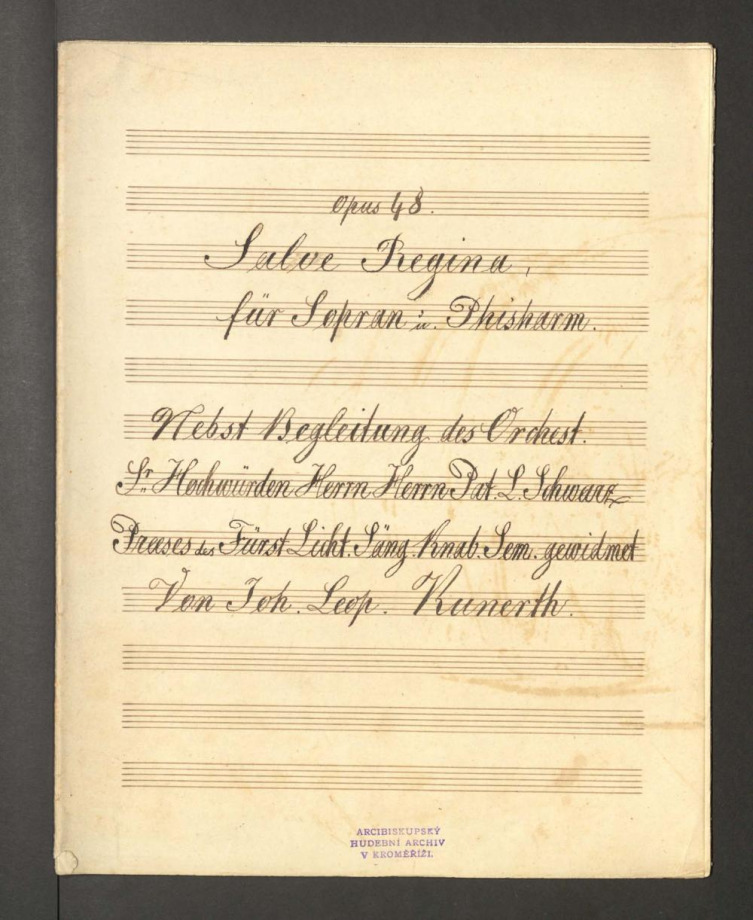 Opus 48.
Salve Regina,
für Sopran u. Phisharm.
Nebst Begleitung des Orchest.
Sr. Hochwürden Herrn Herrn Pat. L. Schwarz
Praeses des Fürst Licht. Säng. Knab. Sem. gewidmet
Von Joh. Leop. Kunerth.
ARCIBISKUPSKÝ
HUDEBNÍ ARCHIV
V KROMĚŘÍŽI.